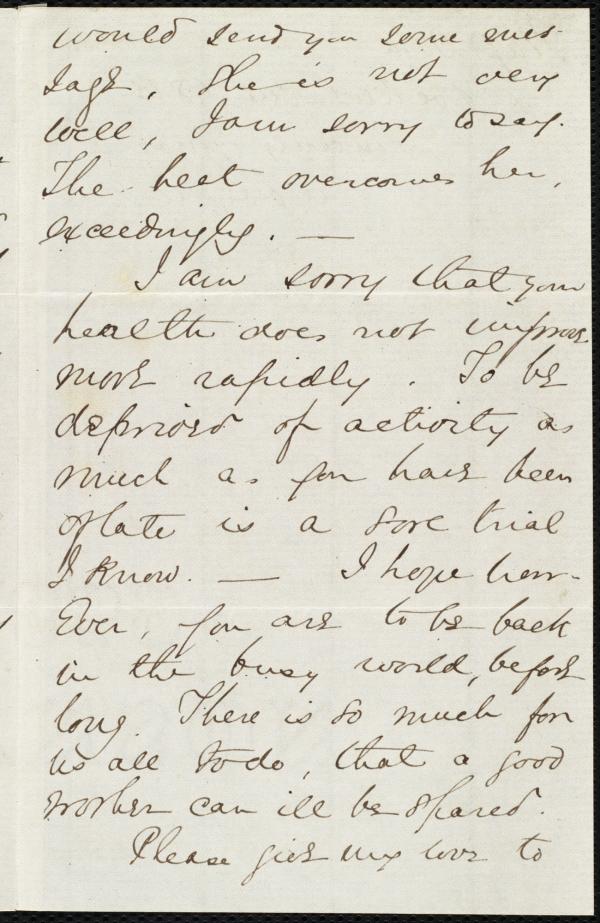 would send you some mes-
sage. She is not very
well, I am sorry to say.
The heat overcomes her,
exceedingly. —
I am sorry that your
health does not improve
more rapidly. To be
deprived of activity as
much as you have been
of late is a sore trial
I know. — I hope how-
ever, you are to be back
in the busy world, before
long. There is so much for
us all to do, that a good
worker can ill be spared.
Please give my love to